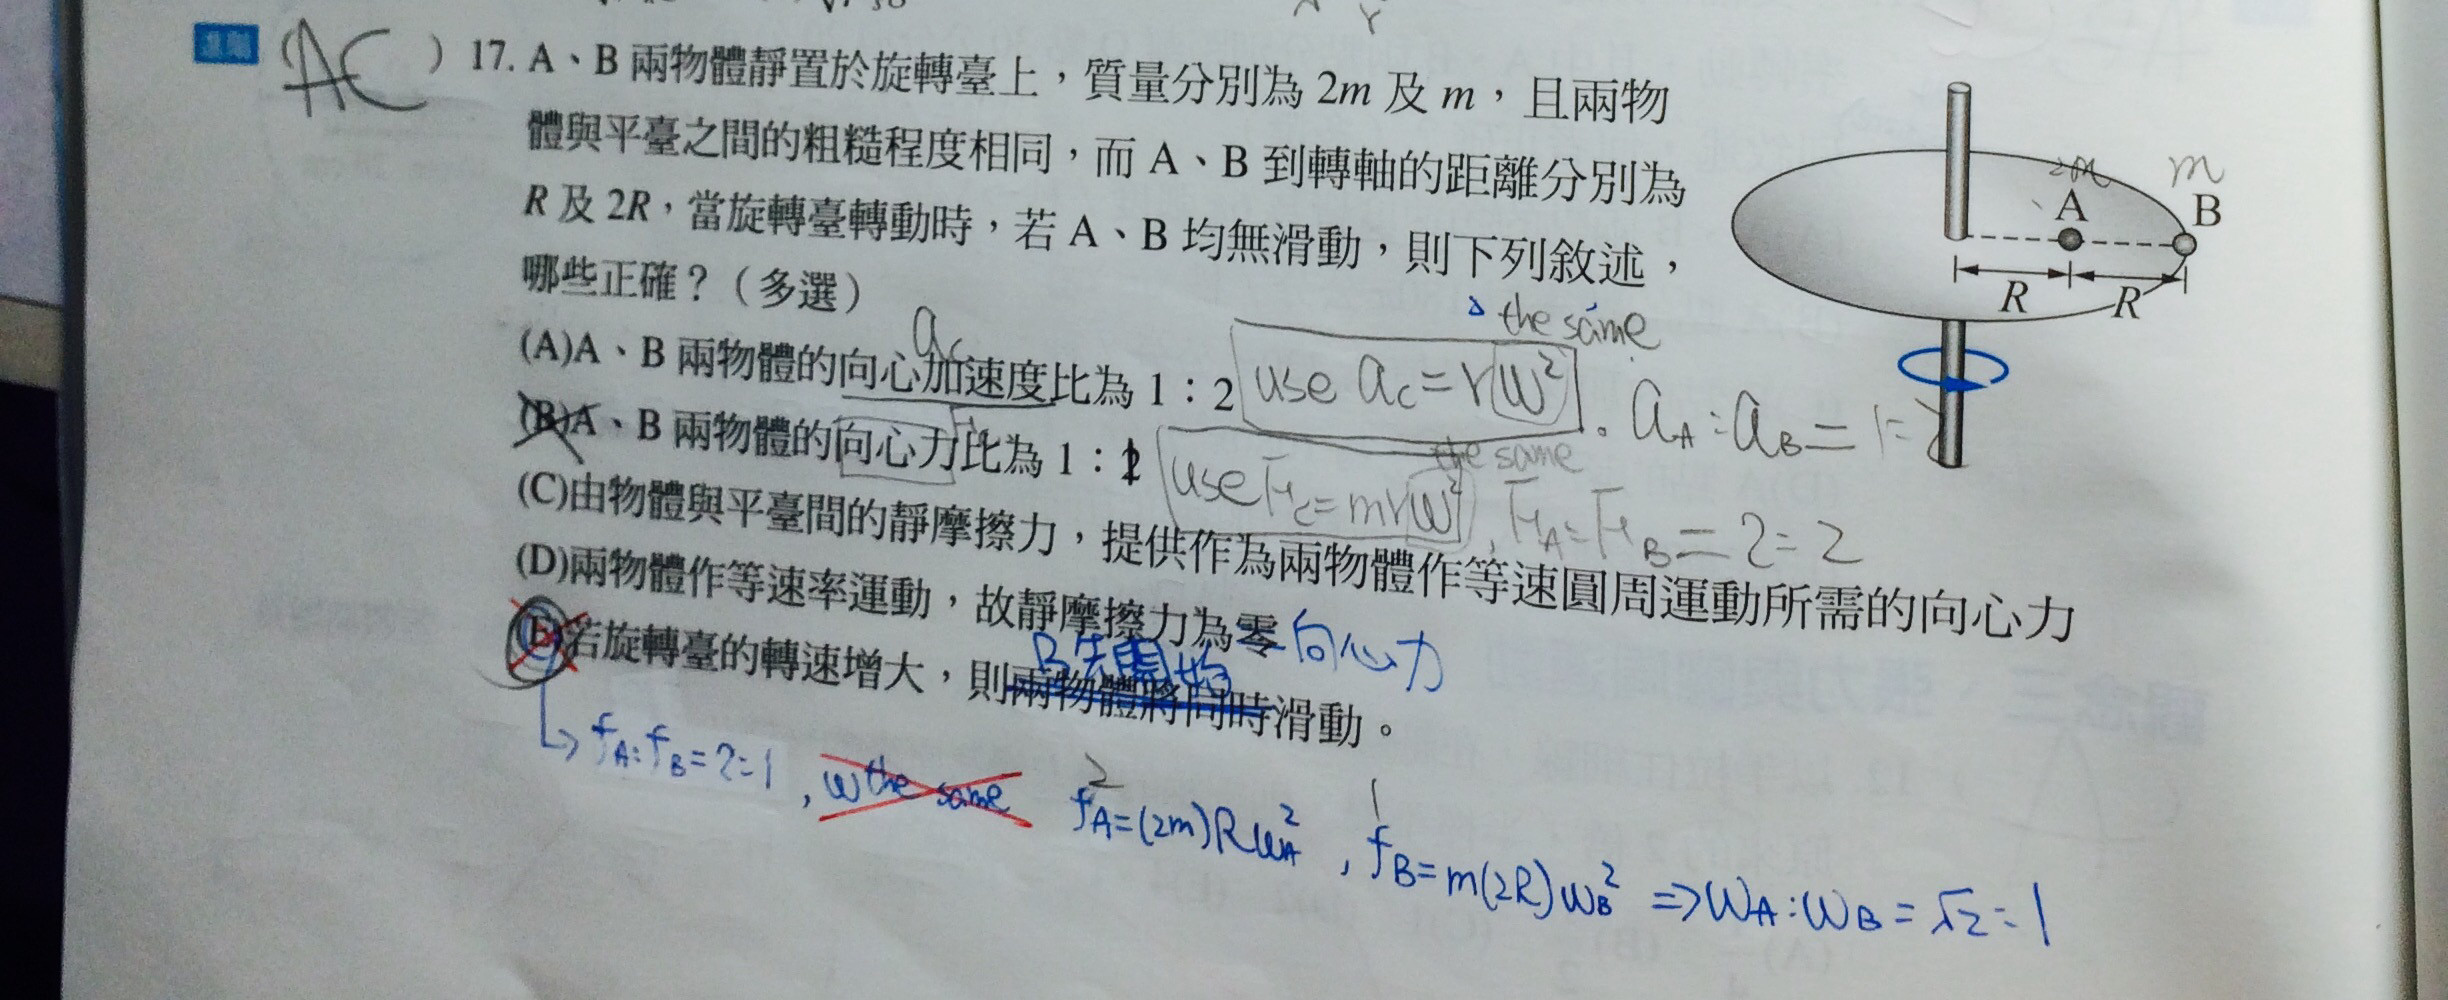 AC ) 17. A、B 兩物體靜置於旋轉臺上，質量分別為 2m 及 m，且兩物
體與平臺之間的粗糙程度相同，而 A、B 到轉軸的距離分別為
R 及 2R，當旋轉臺轉動時，若 A、B 均無滑動，則下列敘述，
哪些正確？（多選）
2m m
A B
R R
ac
the same
(A)A、B 兩物體的向心加速度比為 1：2 use ac=rω² 。aA:aB=1:2
the same
(B)A、B 兩物體的向心力比為 1：1 use Fc=mrω², FA:FB=2:2
(C)由物體與平臺間的靜摩擦力，提供作為兩物體作等速圓周運動所需的向心力
(D)兩物體作等速率運動，故靜摩擦力為零 向心力
B先開始
(E)若旋轉臺的轉速增大，則兩物體將同時滑動。
fA:fB=2:1 , ω the same
2 1
fA=(2m)RωA² , fB=m(2R)ωB² ⇒ωA:ωB=√2:1